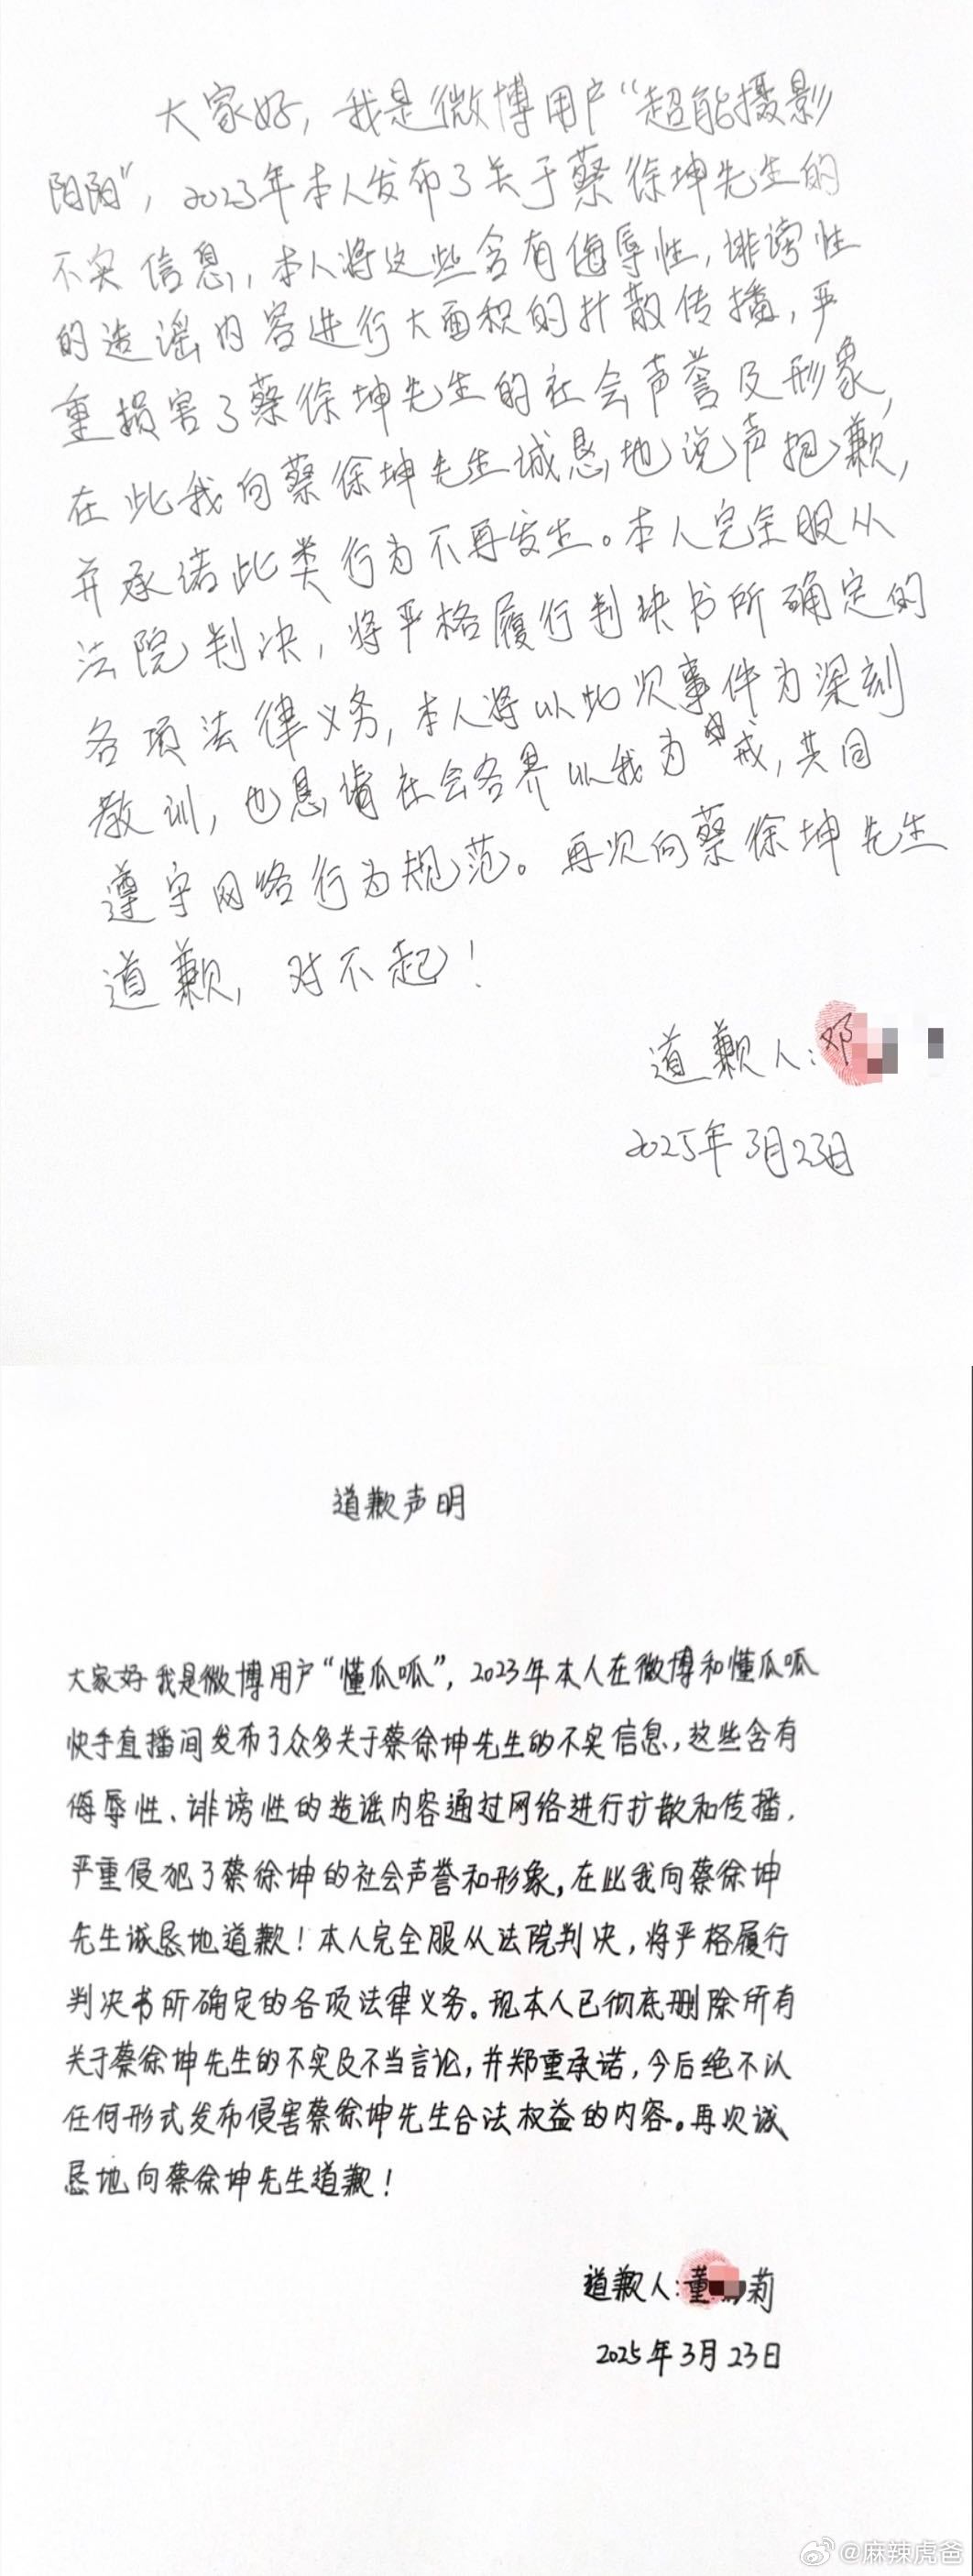 大家好，我是微博用户“超能摄影
阳阳”，2023年本人发布了关于蔡徐坤先生的
不实信息，本人将这些含有侮辱性，诽谤性
的造谣内容进行大面积的扩散传播，严
重损害了蔡徐坤先生的社会声誉及形象，
在此我向蔡徐坤先生诚恳地说声抱歉，
并承诺此类行为不再发生。本人完全服从
法院判决，将严格履行判块书所确定的
各项法律义务，本人将以此次事件为深刻
教训，也恳请在会各界以我为戒，共同
遵守网络行为规范。再次向蔡徐坤先生
道歉，对不起！
道歉人：邓
2025年3月23日
道歉声明
大家好我是微博用户“懂瓜呱”，2023年本人在微博和懂瓜呱
快手直播间发布了众多关于蔡徐坤先生的不实信息，这些含有
侮辱性、诽谤性的造谣内容通过网络进行扩散和传播，
严重侵犯了蔡徐坤的社会声誉和形象，在此我向蔡徐坤
先生诚恳地道歉！本人完全服从法院判决，将严格履行
判决书所确定的各项法律义务。现本人已彻底删除所有
关于蔡徐坤先生的不实及不当言论，并郑重承诺，今后绝不以
任何形式发布侵害蔡徐坤先生合法权益的内容。再次诚
恳地向蔡徐坤先生道歉！
道歉人：董 莉
2025年3月23日
@麻辣虎爸